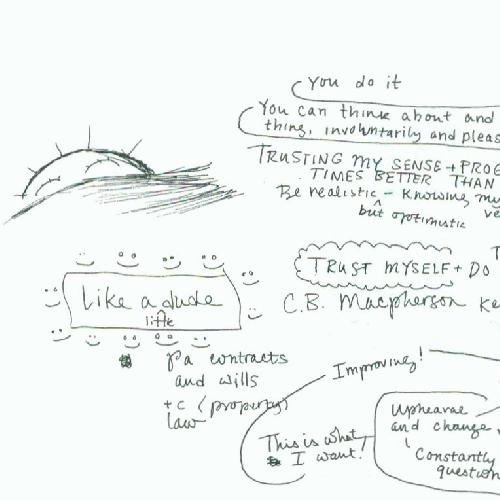 You do it
You can think about and
thing, involuntarily and pleas
TRUSTING MY SENSE + PROG
TIMES BETTER THAN
Be realistic - Knowing my
^ but optimistic
ve
T
TRUST MYSELF + DO
Like a dude
little
C.B. Macpherson Ke
pa contracts
and wills
+ c (property)
law
Improving!
This is what
I want!
Upheave
and change
Constantly
question